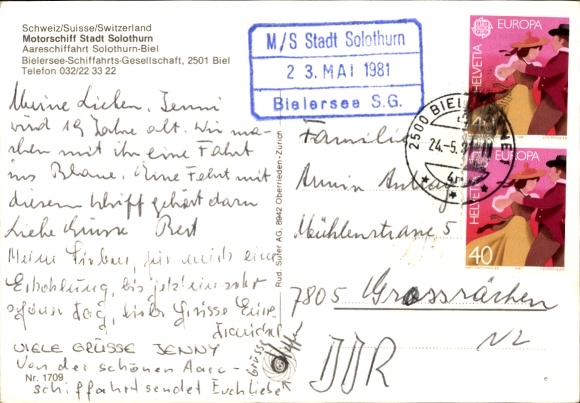 Schweiz/Suisse/Switzerland
Motorschiff Stadt Solothurn
Aareschiffahrt Solothurn-Biel
Bielersee-Schiffahrts-Gesellschaft, 2501 Biel
Telefon 032/22 33 22
M/S Stadt Solothurn
23. MAI 1981
Bielersee S.G.
EUROPA
HELVETIA
2500 BIEL
24.-5.
EUROPA
HELVETIA
40
Meine Lieben, Jenni
wird 19 Jahre alt. Wir ma-
chen mit ihr eine Fahrt
ins Blaue. Eine Fahrt mit
diesem Schiff gehört dazu
Liebe Grüsse
Meine Lieben, für mich eine
Erholung, bis jetzt ein sehr
schöner Tag, liebe Grüsse Eure
VIELE GRÜSSE JENNY
Von der schönen Aare-
schiffahrt sendet Euch liebe
Grüsse
Nr. 1709
Rud. Suter AG, 8942 Oberrieden-Zürich
Familie
Armin
Mühlenstrasse 5
7805 Grossräschen
DDR